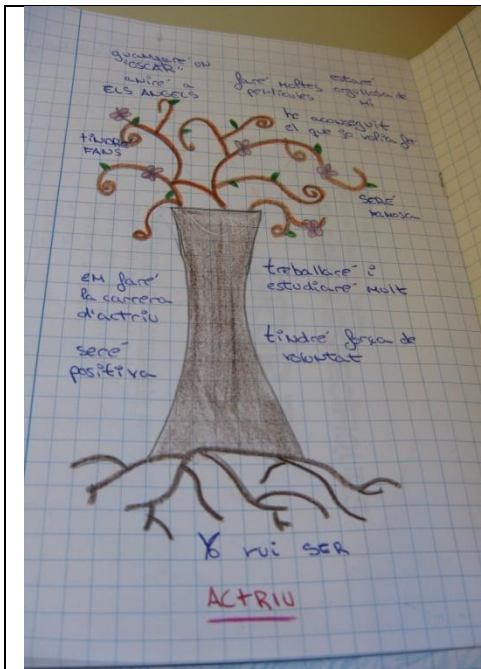 guanyaré un
"OSCAR"
aniré a
ELS ANGELS
faré moltes
pel·lícules
estaré
orgullosa de
mi
he aconseguit
el que jo volia fer
tindré
FANS
SERÉ
famosa
em faré
la carrera
d'actriu
seré
positiva
treballaré i
estudiaré molt
tindré força de
voluntat
Yo vui SER
ACTRIU